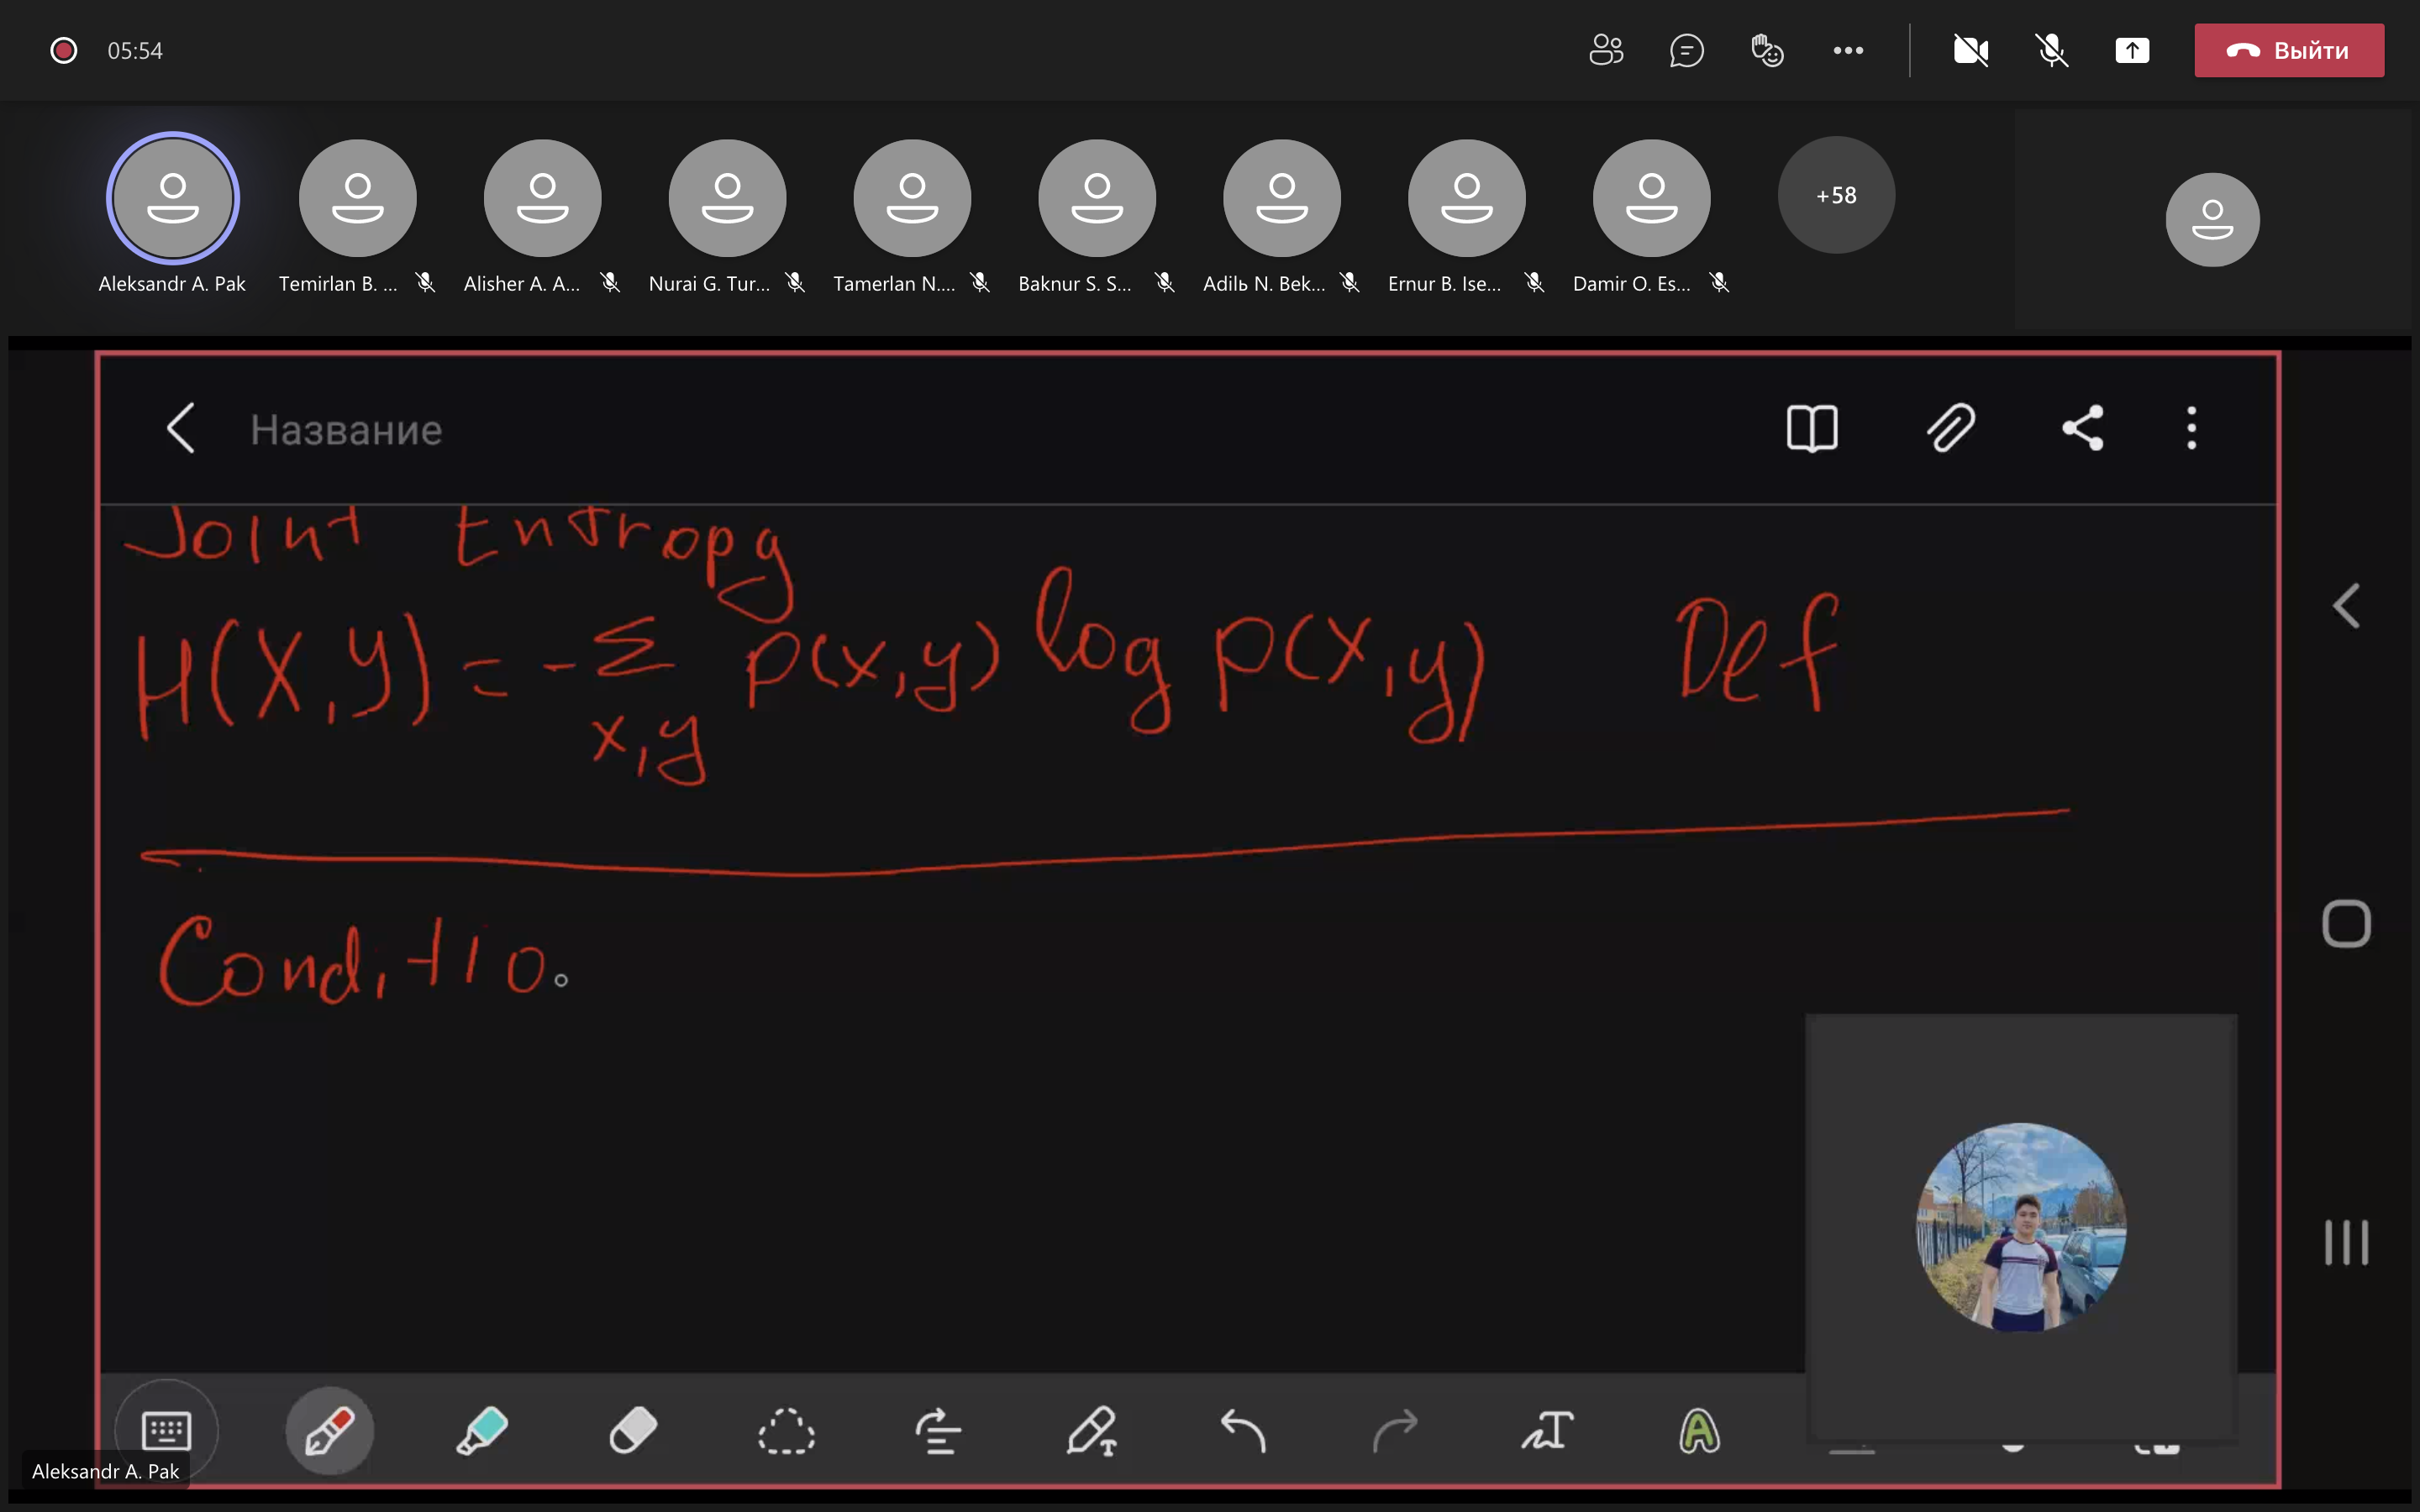 05:54
Выйти
+58
Aleksandr A. Pak
Temirlan B. ...
Alisher A. A...
Nurai G. Tur...
Tamerlan N....
Baknur S. S...
Adilь N. Bek...
Ernur B. Ise...
Damir O. Es...
Название
Joint Entropy
H(X,Y) = -Σ p(x,y) log p(x,y) Def
x,y
Conditio
T
T
A
Aleksandr A. Pak